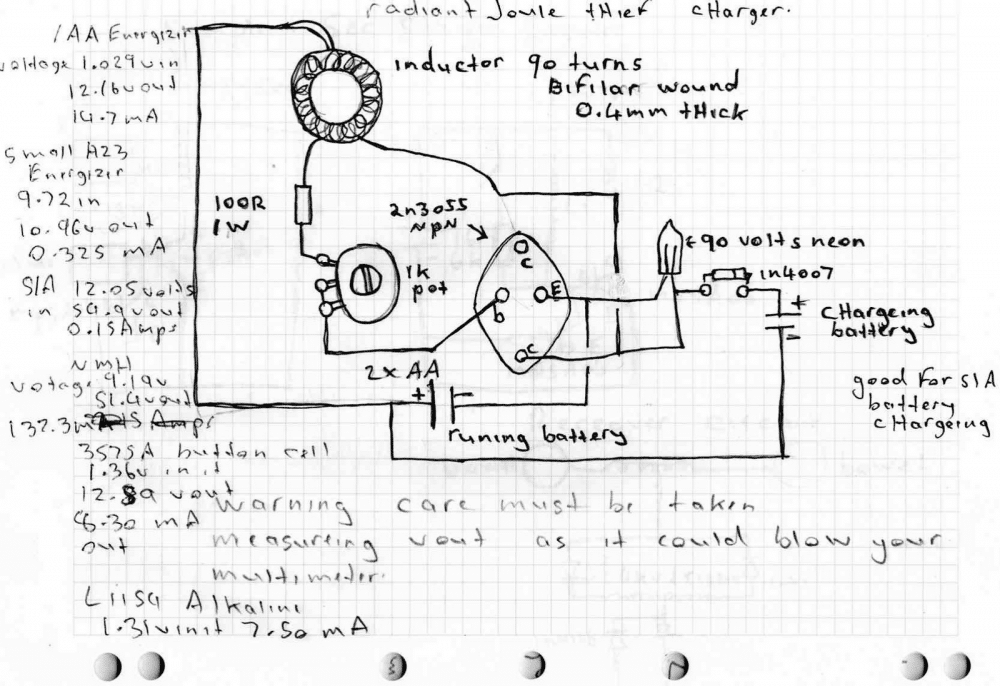 radiant Joule tHief cHarger.
1AA Energizer
voltage 1.029vin
12.16vout
14.7mA
Small A23
Energizer
9.72in
10.96v out
0.325 mA
SlA 12.05volts
in 59.9vout
0.15Amps
NMH
Votage 9.19v
51.4vout
137.3mA
357SA button cell
1.36v in it
12.89 vout
8.30 mA
out
LiiSG Alkaline
1.31vinit 7.50 mA
inductor 90 turns
Bifilar wound
0.4mm tHick
100R
1W
1k
pot
2n3055
NpN
c
E
b
c
90 volts neon
1n4007
+
-
cHargeing
battery
2x AA
+
-
runing battery
good For SlA
battery
cHargeing
Warning care must be taken
measureing vout as it could blow your
multimeter.